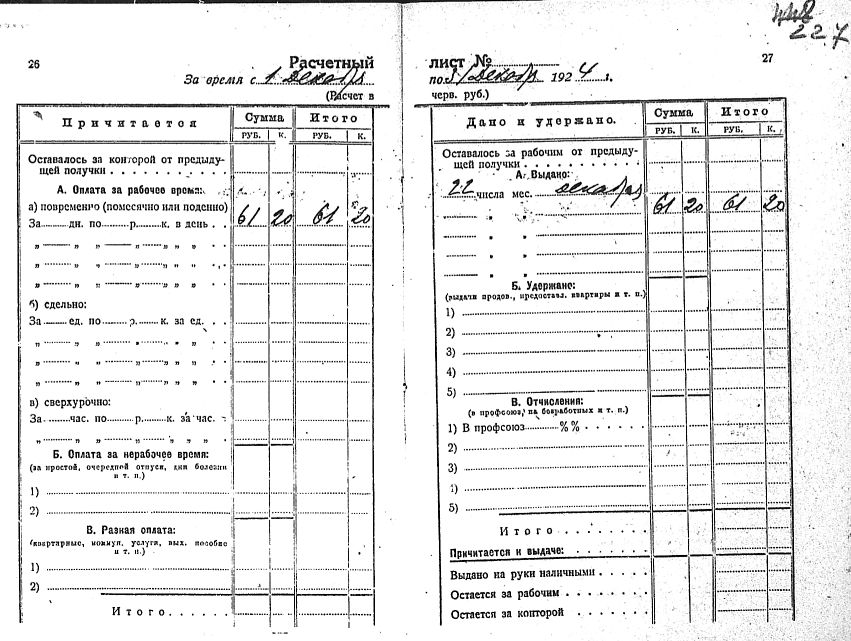 227
26
Расчетный
За время с 1 Декабря
(Расчет в
Причитается
Сумма
Итого
РУБ.
К.
РУБ.
К.
Оставалось за конторой от предыду-
щей получки
А. Оплата за рабочее время:
а) повременно (помесячно или поденно)
За ... дн. по ... р. ... к. в день . .
61 20 61 20
„ „ „ „ „ „
„ „ „ „ „ „
„ „ „ „ „ „
б) сдельно:
За ... ед. по ... р. ... к. за ед. . .
„ „ „ „ „ „
„ „ „ „ „ „
„ „ „ „ „ „
в) сверхурочно:
За ... час. по ... р. ... к. за час.
„ „ „ „ „ „
Б. Оплата за нерабочее время:
(за простой, очередной отпуск, дни болезни
и т. п.)
1)
2)
В. Разная оплата:
(квартирные, коммун. услуги, вых. пособие
и т. п.)
1)
2)
Итого
27
лист №
по 31 Декабр 1924 г.
черв. руб.)
Дано и удержано.
Сумма
Итого
РУБ.
К.
РУБ.
К.
Оставалось за рабочим от предыду-
щей получки
А. Выдано:
22 числа мес. декабря
61 20 61 20
„ „
„ „
„ „
„ „
Б. Удержано:
(выдачи продов., предоставл. квартиры и т. п.)
1)
2)
3)
4)
5)
В. Отчисления:
(в профсоюз, на безработных и т. п.)
1) В профсоюз %%
2)
3)
4)
5)
Итого
Причитается к выдаче:
Выдано на руки наличными
Остается за рабочим
Остается за конторой